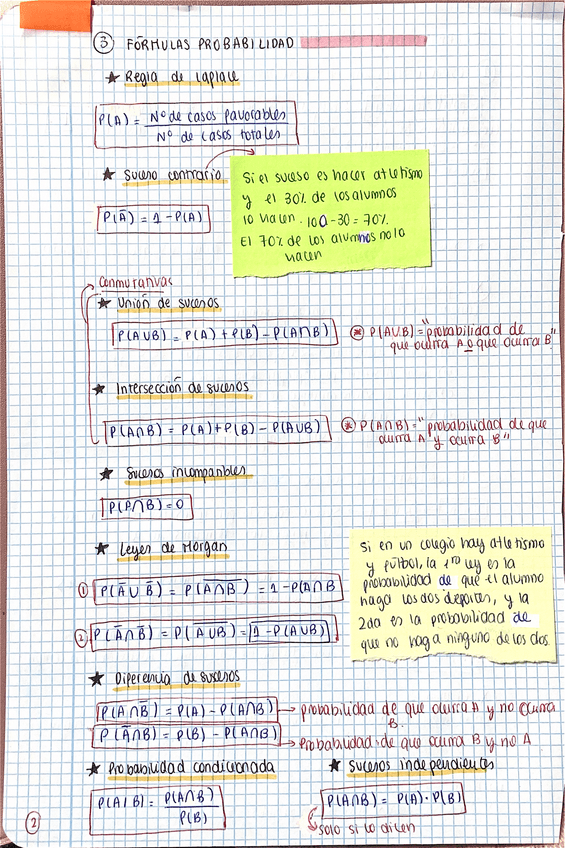 ③ FÓRMULAS PROBABILIDAD
★ Regla de Laplace
P(A) = Nº de casos favorables / Nº de casos totales
★ Suceso contrario
P(Ā) = 1 - P(A)
Si el suceso es hacer atletismo
y el 30% de los alumnos
lo hacen. 100 - 30 = 70%.
El 70% de los alumnos no lo
hacen
Conmutativas
★ Unión de sucesos
P(A∪B) = P(A) + P(B) - P(A∩B)
* P(A∪B) = "probabilidad de
que ocurra A o que ocurra B"
★ Intersección de sucesos
P(A∩B) = P(A) + P(B) - P(A∪B)
* P(A∩B) = "probabilidad de que
ocurra A y ocurra B"
★ Sucesos incompatibles
P(A∩B) = 0
★ Leyes de Morgan
① P(Ā∪B̄) = P(A̅∩̅B̅) = 1 - P(A∩B
② P(Ā∩B̄) = P(A̅∪̅B̅) = 1 - P(A∪B)
Si en un colegio hay atletismo
y fútbol, la 1ra ley es la
probabilidad de que el alumno
haga los dos deportes, y la
2da es la probabilidad de
que no haga ninguno de los dos
★ Diferencia de sucesos
P(A∩B̄) = P(A) - P(A∩B) → probabilidad de que ocurra A y no ocurra
B.
P(Ā∩B) = P(B) - P(A∩B) → Probabilidad de que ocurra B y no A
★ Probabilidad condicionada
P(A/B) = P(A∩B) / P(B)
★ Sucesos independientes
P(A∩B) = P(A) · P(B)
solo si lo dicen
②